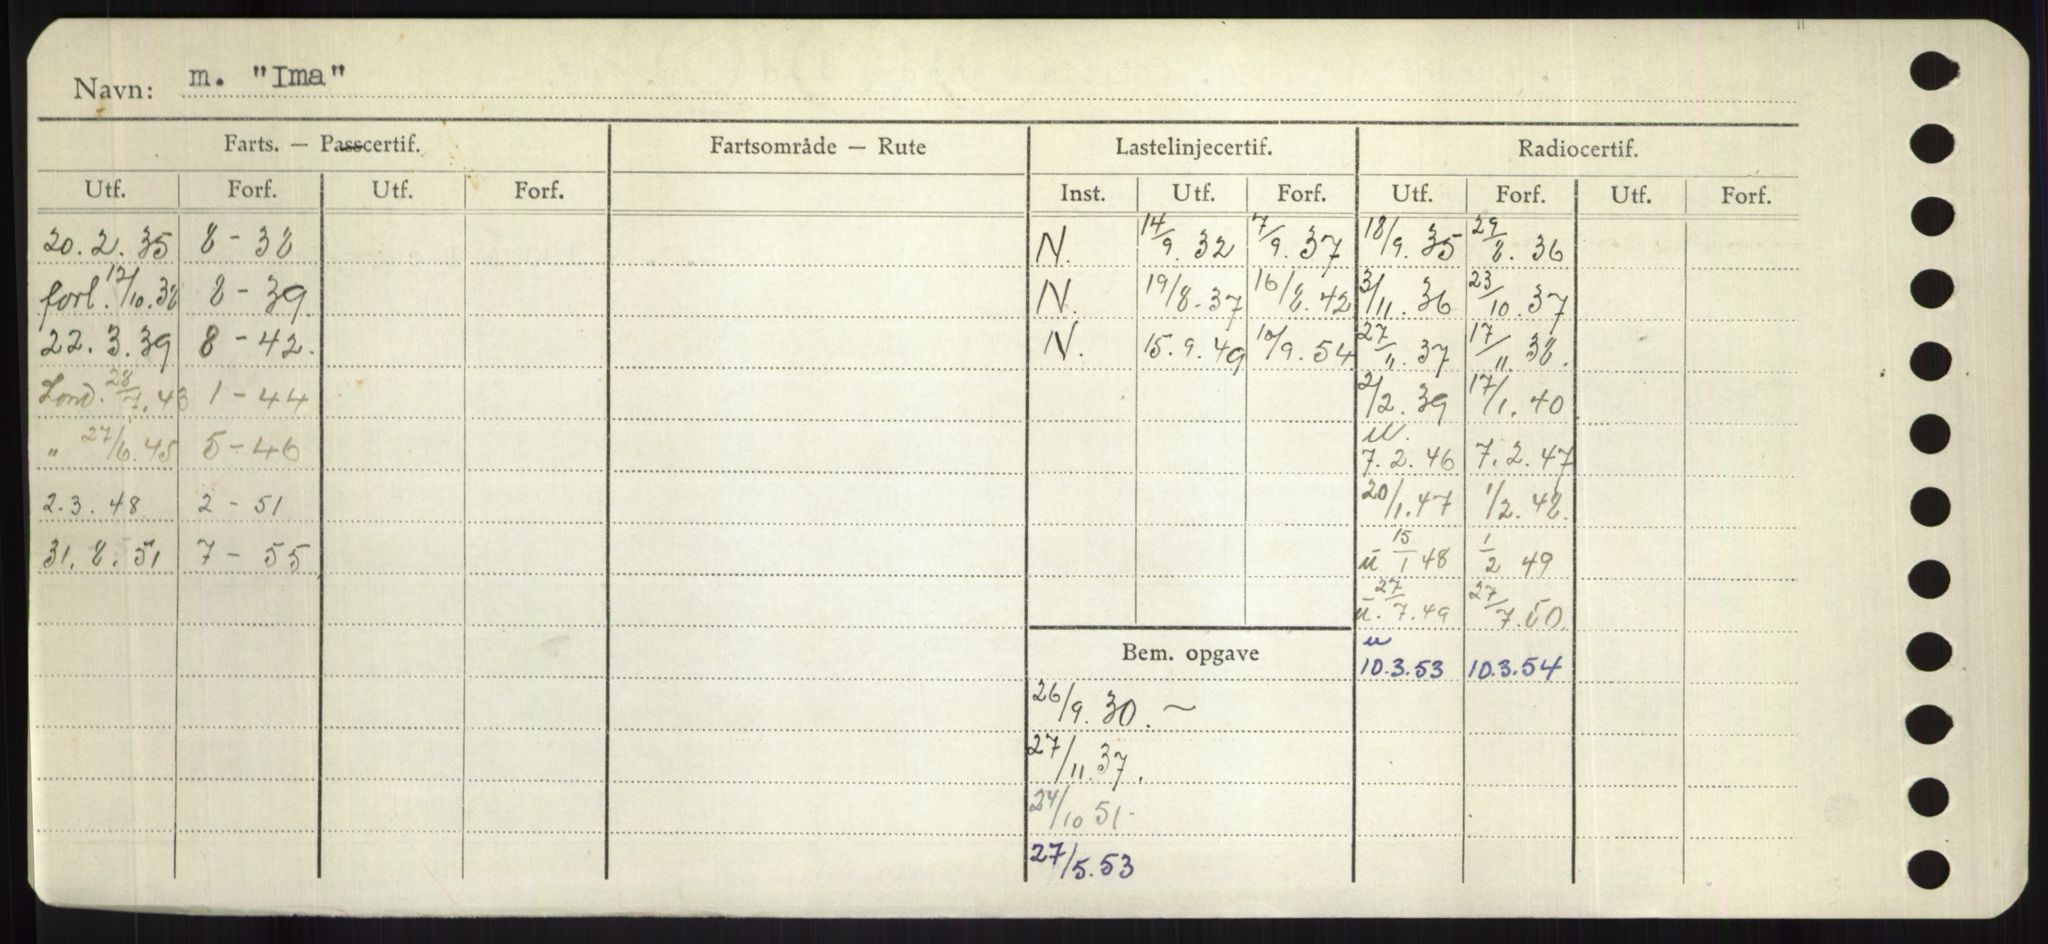 Navn: m. "Ima"
Farts. — Passcertif. Fartsområde — Rute Lastelinjecertif. Radiocertif.
Utf. Forf. Utf. Forf. Inst. Utf. Forf. Utf. Forf. Utf. Forf.
20.2.35 8-38 N. 14/9.32 7/9.37 18/9.35 29/8.36
forl. 12/10.38 8-39 N. 19/8.37 16/8.42 3/11.36 23/10.37
22.3.39 8-42. N. 15.9.49 10/9.54 27/„.37 17/„.38.
Lond. 28/7.43 1-44 2/2.39 17/1.40
„ 27/6.45 5-46 u. 7.2.46 7.2.47
2.3.48 2-51 20/1.47 1/2.48.
31.8.51 7-55 u 15/1 48 1/2 49
u. 27/7.49 27/7.50
Bem. opgave u 10.3.53 10.3.54
26/9.30. ~
27/11.37.
24/10 51-
27/5.53